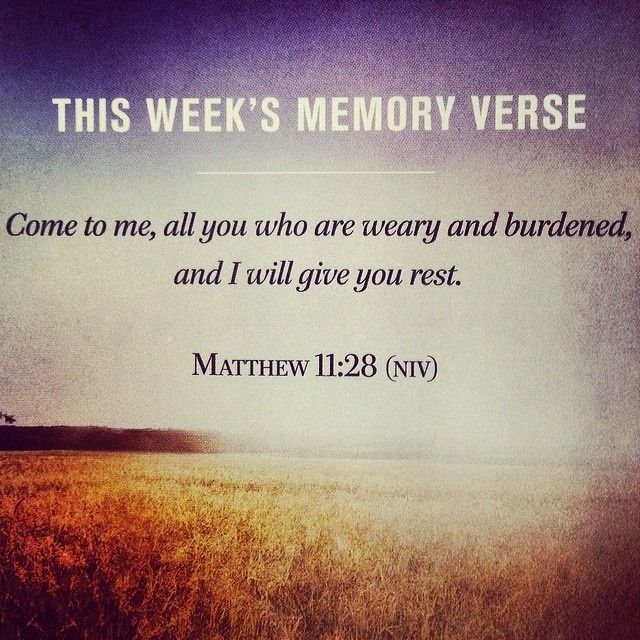 THIS WEEK'S MEMORY VERSE
Come to me, all you who are weary and burdened,
and I will give you rest.
MATTHEW 11:28 (NIV)